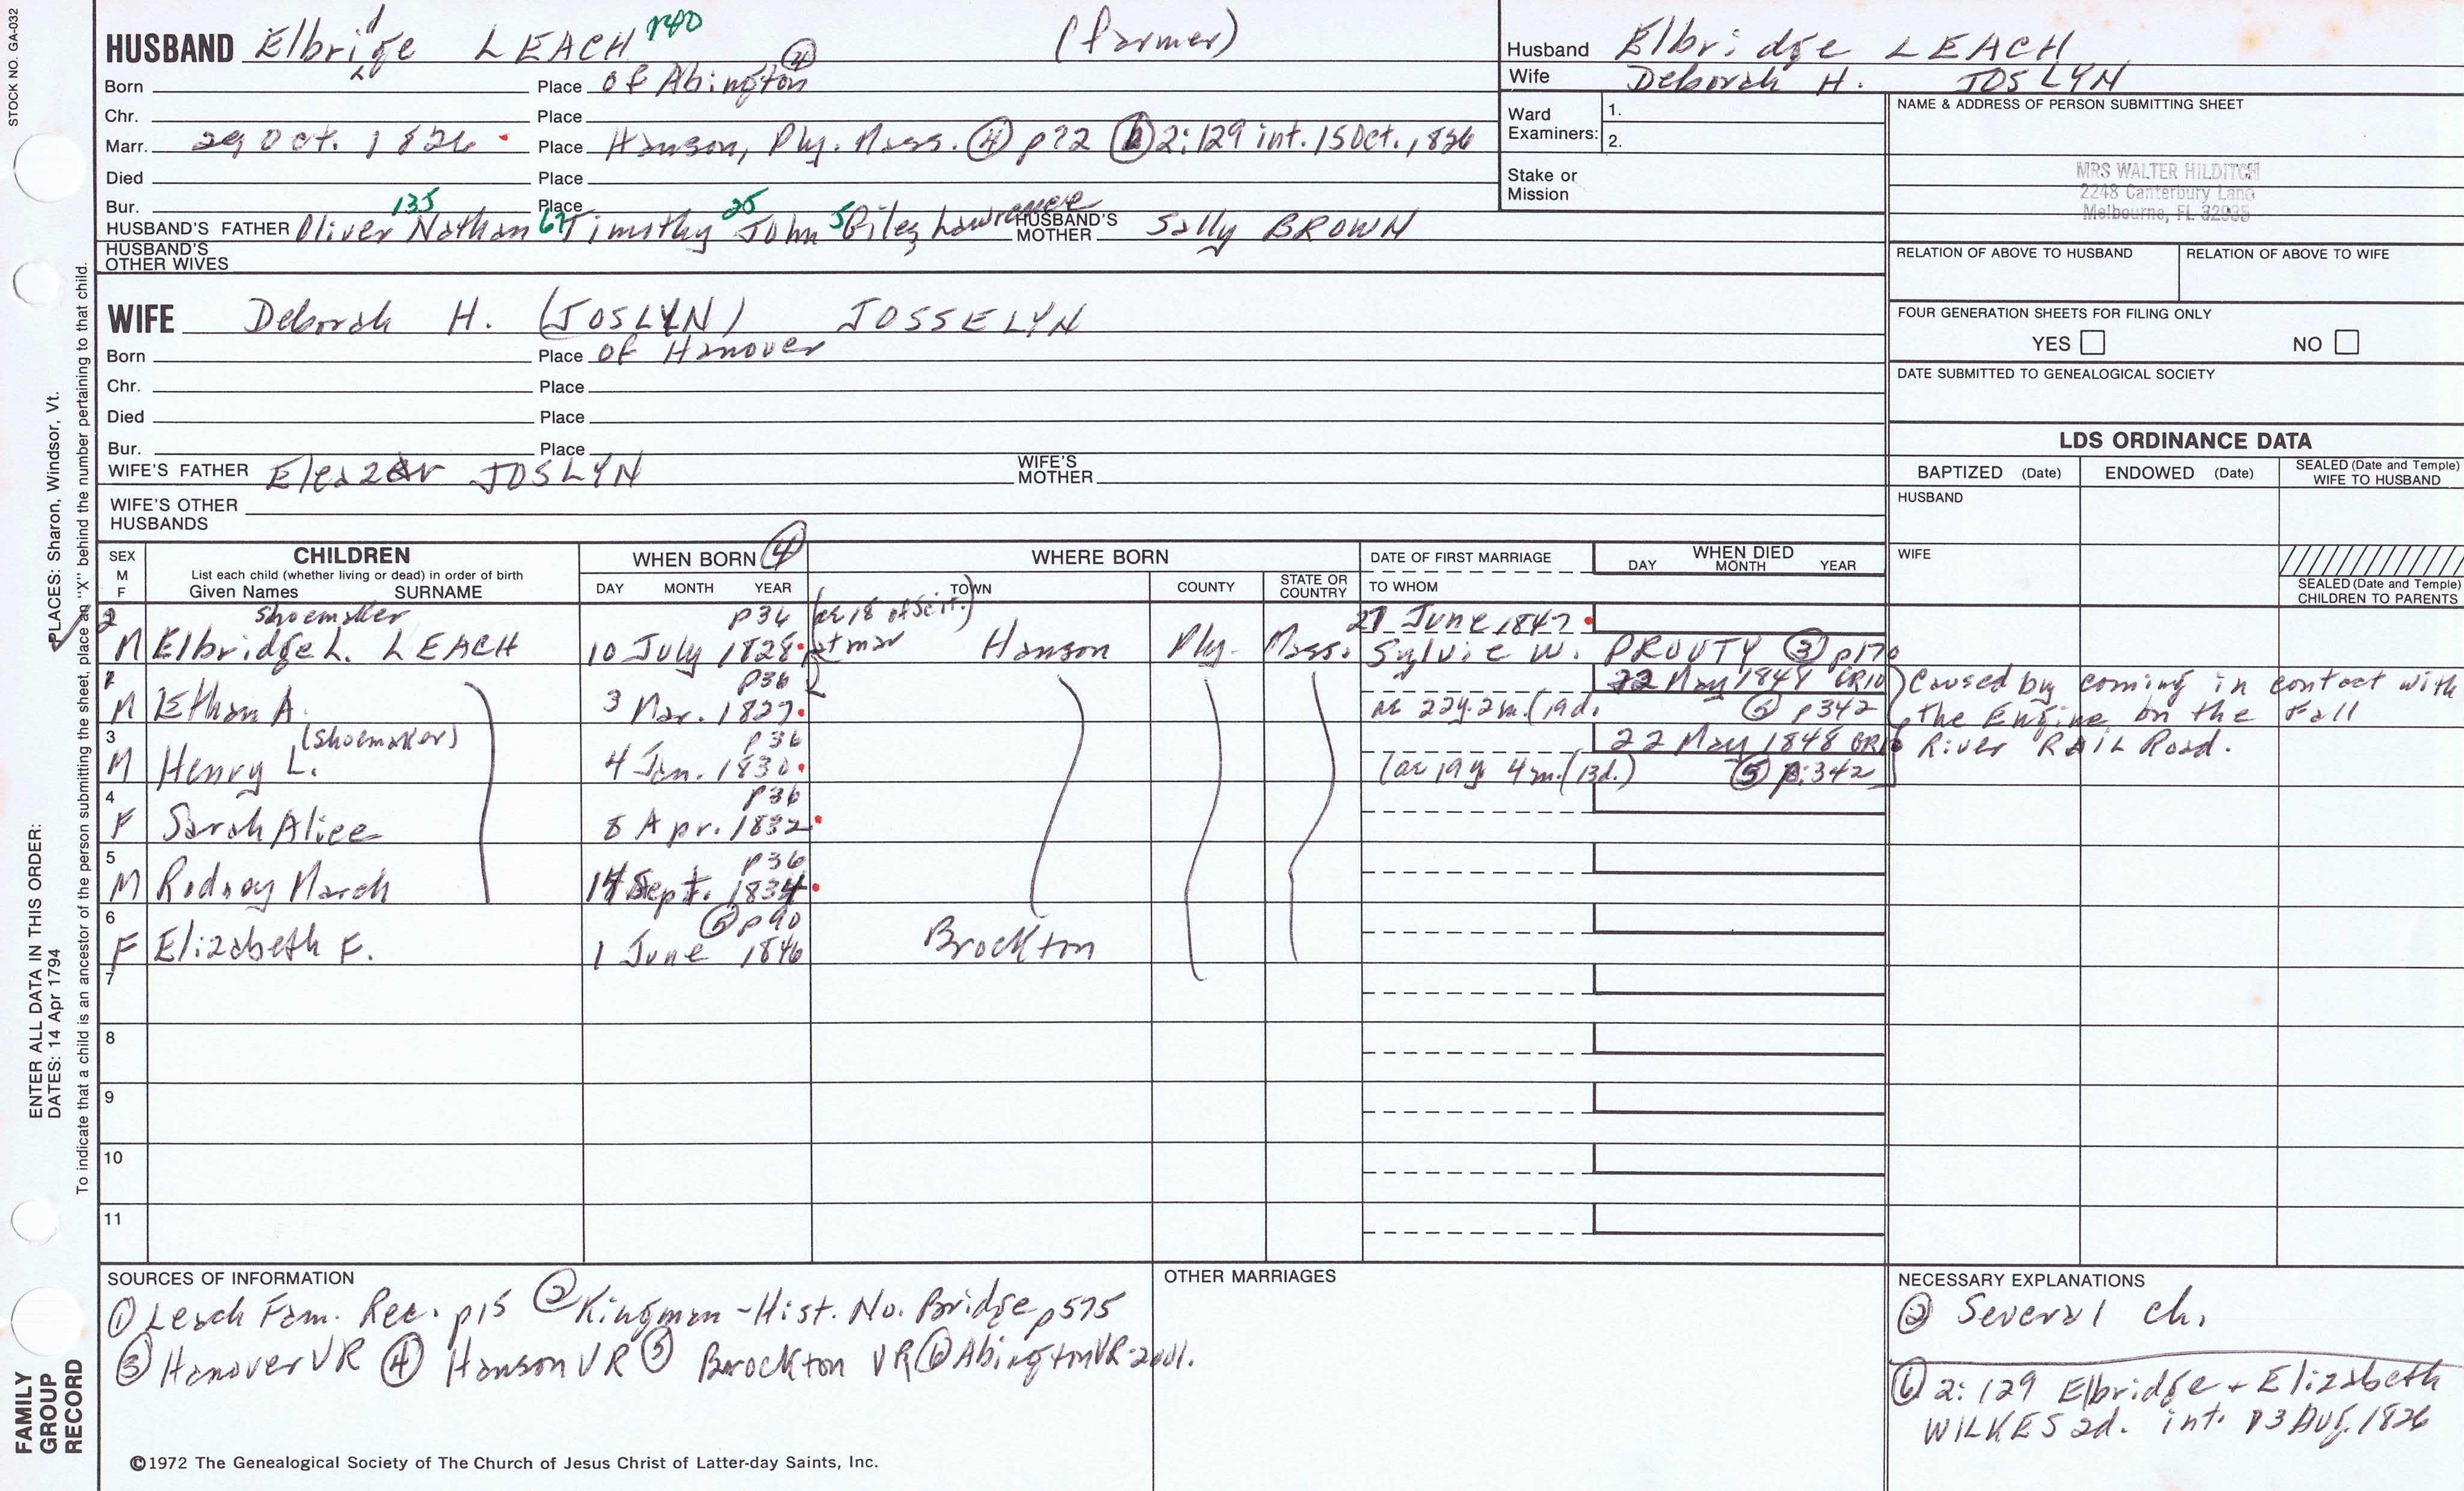 STOCK NO. GA-032
HUSBAND Elbridge LEACH 740 (farmer)
Born Place of Abington ④
Chr. Place
Marr. 29 Oct. 1826 Place Hanson, Ply. Mass. ④ p72 ⑥ 2:129 int. 15 Oct., 1826
Died Place
Bur. Place
HUSBAND'S FATHER Oliver 135 Nathan 67 Timothy 25 John 5 Giles Lawrence HUSBAND'S MOTHER Sally BROWN
HUSBAND'S OTHER WIVES
Husband Elbridge LEACH
Wife Deborah H. JOSLYN
Ward Examiners: 1.
2.
Stake or Mission
NAME & ADDRESS OF PERSON SUBMITTING SHEET
MRS WALTER HILDITCH
2248 Canterbury Lane
Melbourne, FL 32935
RELATION OF ABOVE TO HUSBAND RELATION OF ABOVE TO WIFE
FOUR GENERATION SHEETS FOR FILING ONLY
YES NO
DATE SUBMITTED TO GENEALOGICAL SOCIETY
WIFE Deborah H. (JOSLYN) JOSSELYN
Born Place of Hanover
Chr. Place
Died Place
Bur. Place
WIFE'S FATHER Eleazer JOSLYN WIFE'S MOTHER
WIFE'S OTHER HUSBANDS
LDS ORDINANCE DATA
BAPTIZED (Date) ENDOWED (Date) SEALED (Date and Temple) WIFE TO HUSBAND
HUSBAND
WIFE
SEALED (Date and Temple) CHILDREN TO PARENTS
SEX M F
CHILDREN
List each child (whether living or dead) in order of birth
Given Names SURNAME
WHEN BORN ④
DAY MONTH YEAR
WHERE BORN
TOWN COUNTY STATE OR COUNTRY
DATE OF FIRST MARRIAGE
TO WHOM
WHEN DIED
DAY MONTH YEAR
2 shoemaker p36 (ae 18 of Scit.) 27 June, 1847
M Elbridge L. LEACH 10 July 1828 at mar Hanson Ply. Mass. Sylvie W. PROUTY ③ p170
1 p36 22 May 1849 GR10 Caused by coming in contact with
M Ethan A. 3 Mar. 1827 ae 22y. 2m. (19d. ⑤ p342 the Engine on the Fall
3 (shoemaker) p36 22 May 1848 GR10 River RAIL Road.
M Henry L. 4 Jan. 1830 (ae 19y 4m. (13d.) ⑤ p.342
4 p36
F Sarah Alice 8 Apr. 1832
5 p36
M Rodney March 14 Sept. 1834
6 ⑤ p90
F Elizabeth F. 1 June 1846 Brockton
7
8
9
10
11
SOURCES OF INFORMATION
① Leach Fam. Rec. p15 ② Kingman - Hist. No. Bridge p575
③ Hanover VR ④ Hanson VR ⑤ Brockton VR ⑥ Abington VR-2vol.
©1972 The Genealogical Society of The Church of Jesus Christ of Latter-day Saints, Inc.
OTHER MARRIAGES
NECESSARY EXPLANATIONS
② Several ch.
⑥ 2:129 Elbridge + Elizabeth
WILKES 2d. int. 13 Aug. 1826
ENTER ALL DATA IN THIS ORDER:
DATES: 14 Apr 1794
PLACES: Sharon, Windsor, Vt.
To indicate that a child is an ancestor of the person submitting the sheet, place an "X" behind the number pertaining to that child.
FAMILY
GROUP
RECORD